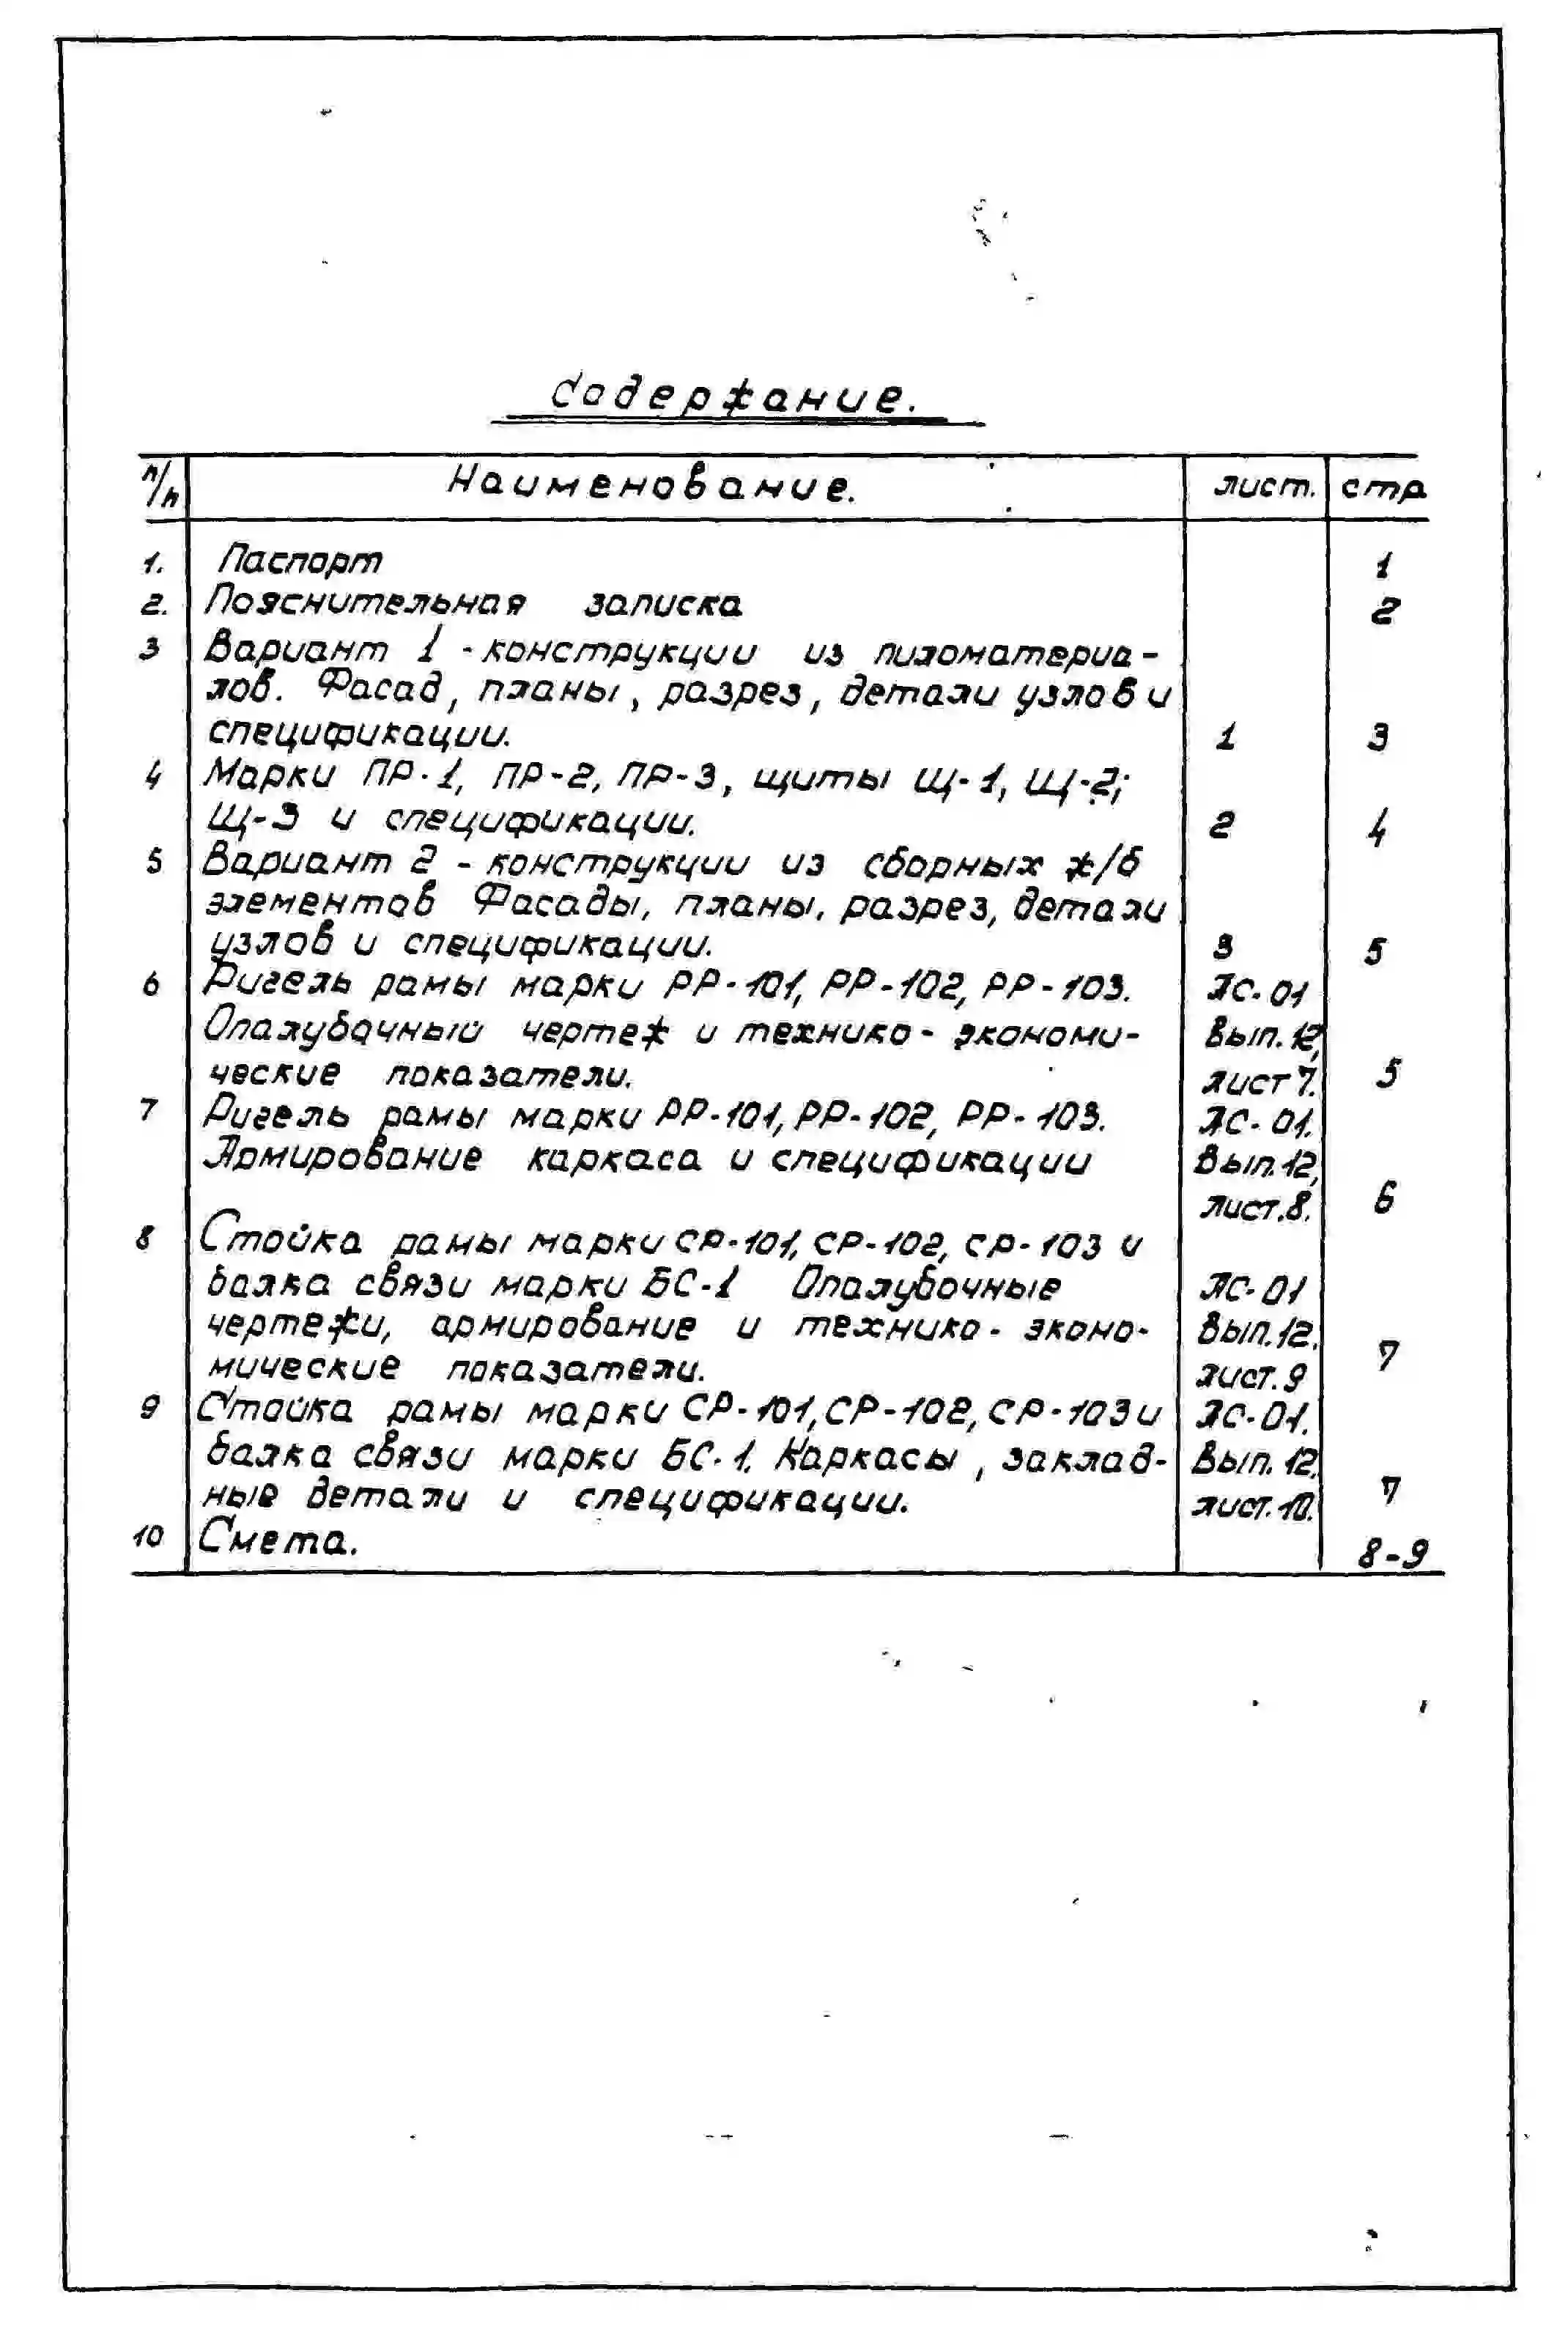 Содержание.
п/п Наименование. лист. стр
1. Паспорт 1
2. Пояснительная записка 2
3 Вариант 1 - конструкции из пиломатериа-
лов. Фасад, планы, разрез, детали узлов и
спецификации. 1 3
4 Марки ПР-1, ПР-2, ПР-3, щиты Щ-1, Щ-2;
Щ-3 и спецификации. 2 4
5 Вариант 2 - конструкции из сборных ж/б
элементов Фасады, планы, разрез, детали
узлов и спецификации. 3 5
6 Ригель рамы марки РР-101, РР-102, РР-103. ЛС-01
Опалубочный чертеж и технико-экономи- Вып. 12,
ческие показатели. лист 7. 5
7 Ригель рамы марки РР-101, РР-102, РР-103. ЛС-01.
Армирование каркаса и спецификации Вып. 12,
лист. 8. 6
8 Стойка рамы марки СР-101, СР-102, СР-103 и
балка связи марки БС-1 Опалубочные ЛС-01
чертежи, армирование и технико-эконо- Вып. 12.
мические показатели. лист. 9 7
9 Стойка рамы марки СР-101, СР-102, СР-103 и ЛС-01.
балка связи марки БС-1. Каркасы, заклад- Вып. 12,
ные детали и спецификации. лист. 10. 7
10 Смета. 8-9